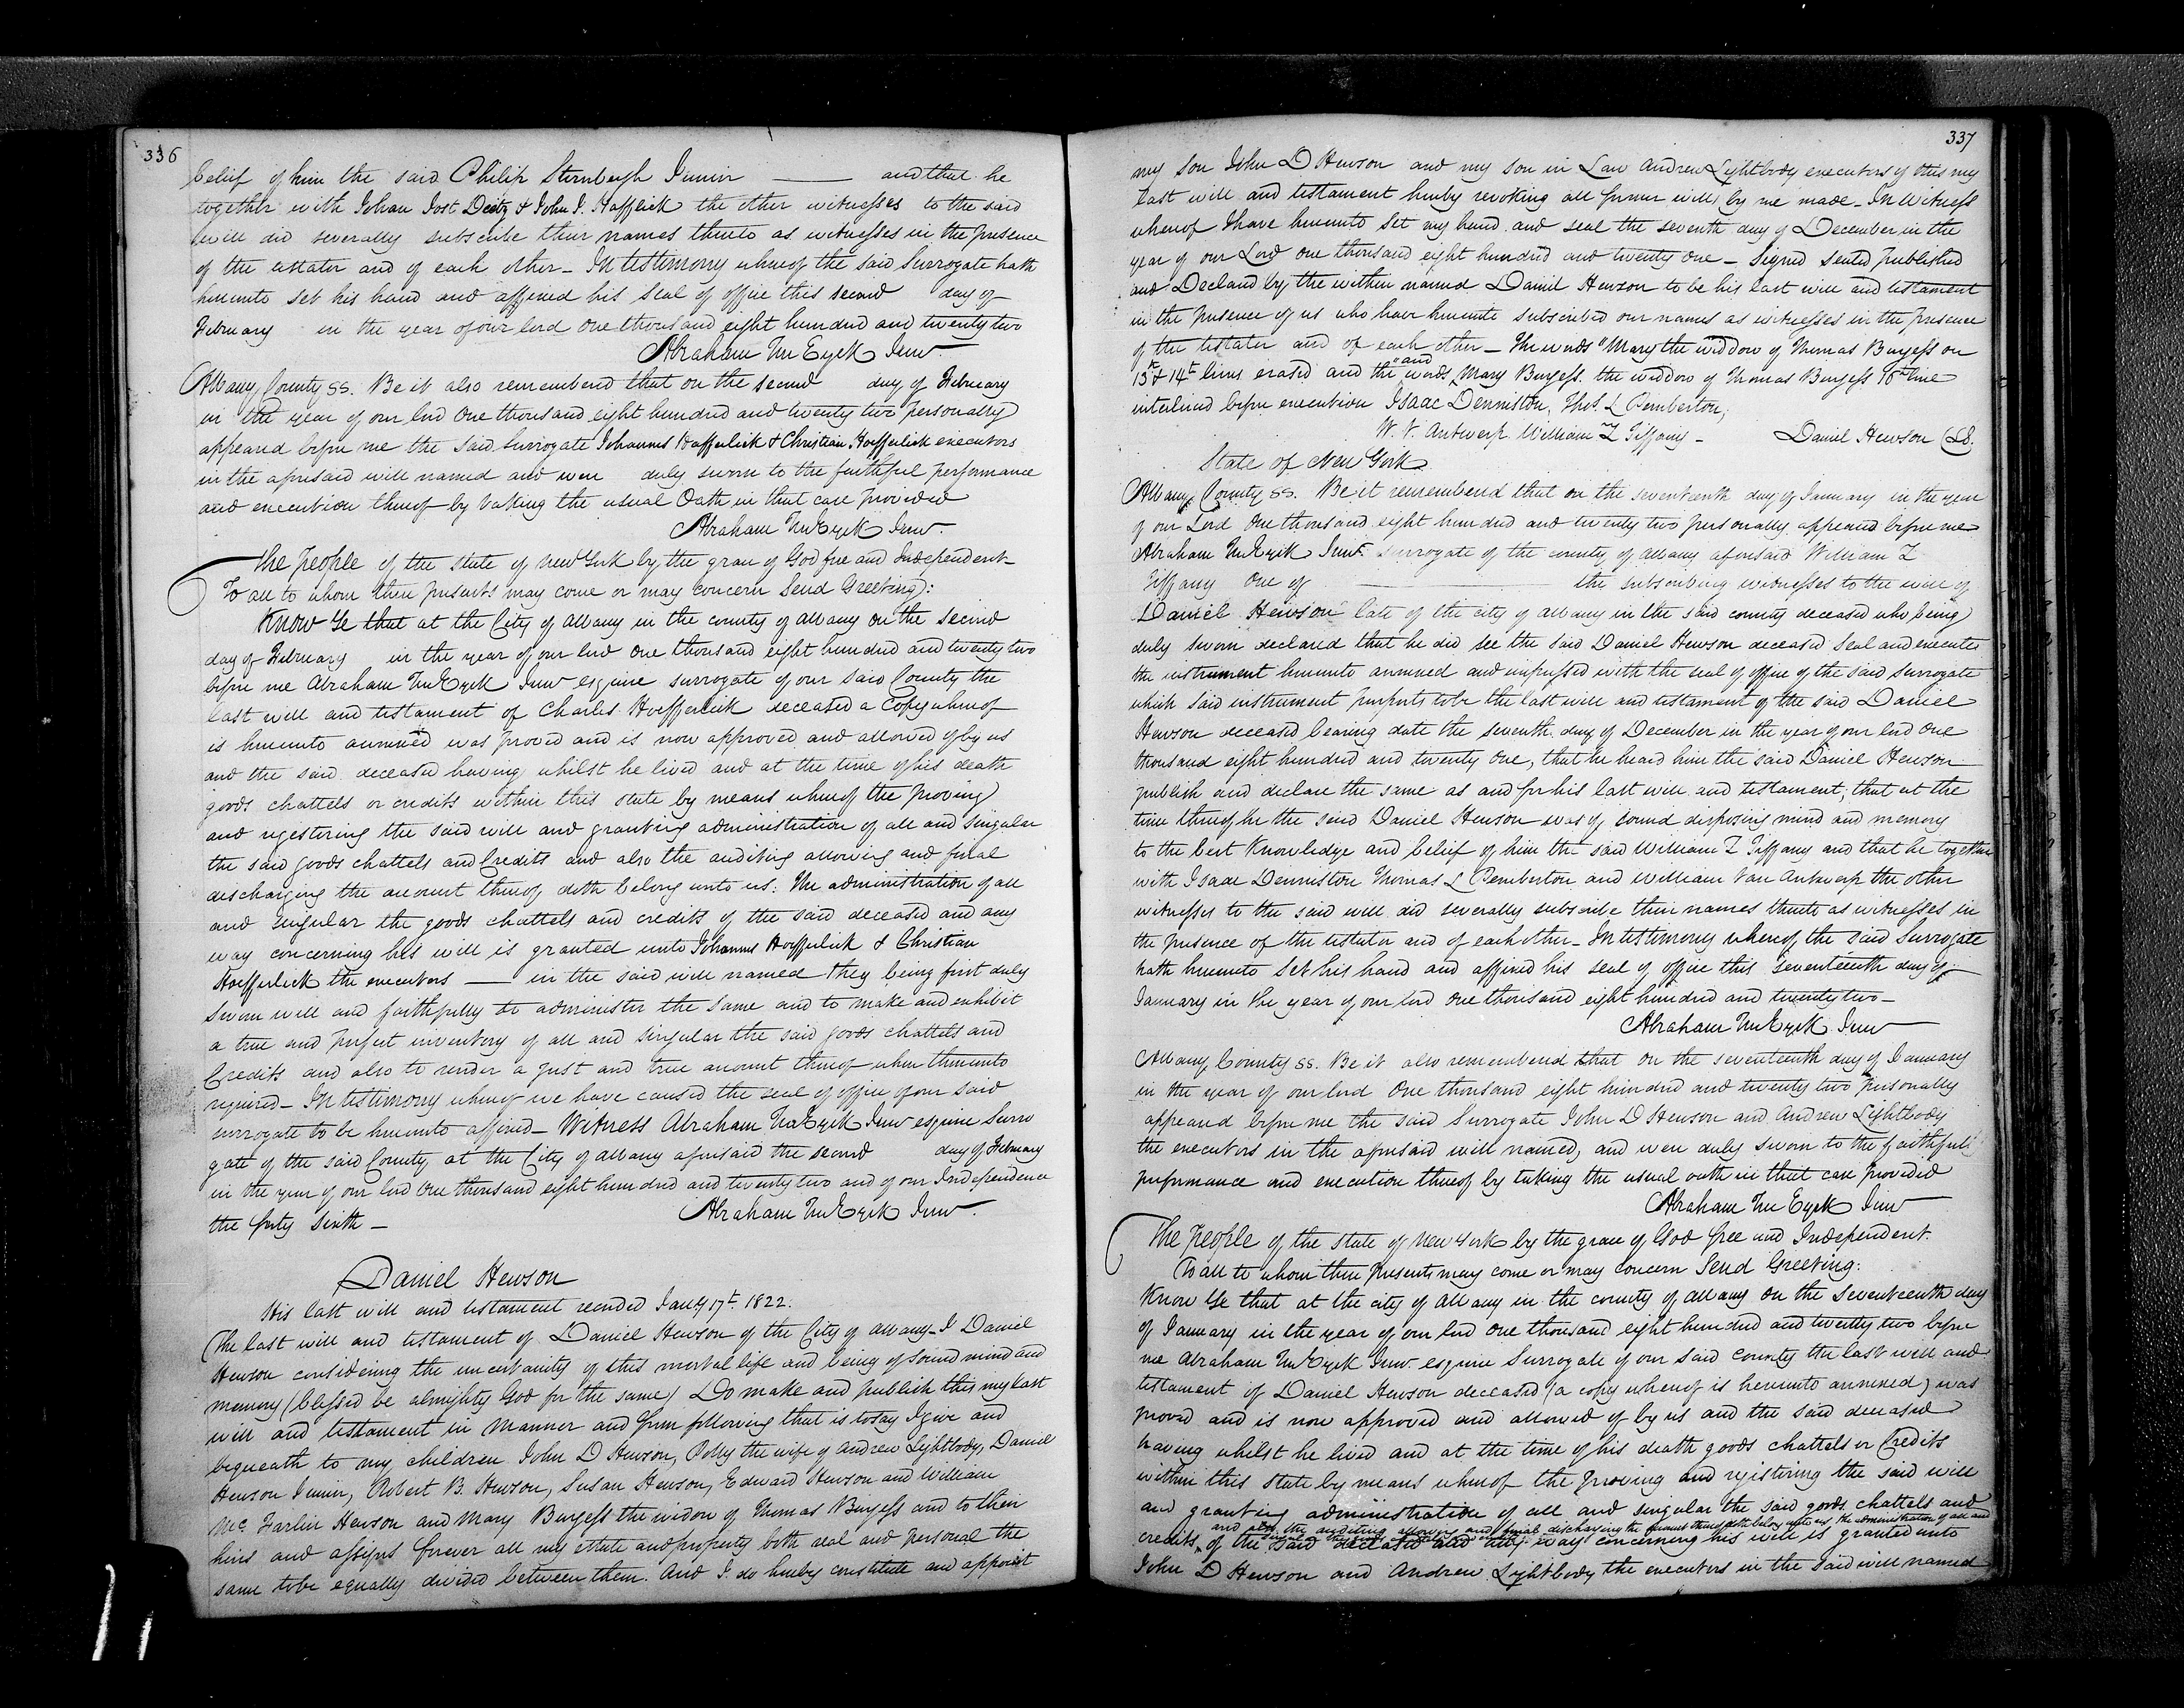 336
belief of him the said Philip Sternbergh Junior —— and that he
together with Johan Jost Deitz & John J. Hafflick the other witnesses to the said
will did severally subscribe their names thereto as witnesses in the presence
of the testator and of each other – In testimony whereof the said Surrogate hath
hereunto set his hand and affixed his seal of office this second day of
February in the year of our lord One thousand eight hundred and twenty two
Abraham Ten Eyck Junr.
Albany County ss. Be it also remembered that on the second day of February
in the year of our lord One thousand eight hundred and twenty two personally
appeared before me the said Surrogate Johannes Hoefferlick & Christian Hoefferlick executors
in the aforesaid will named and were duly sworn to the faithful performance
and execution thereof by taking the usual Oath in that case provided
Abraham Ten Eyck Junr.
The people of the state of New York by the grace of God free and Independent
To all to whom these presents may come or may concern Send Greeting:
Know Ye that at the City of Albany in the county of Albany on the second
day of February in the year of our lord one thousand eight hundred and twenty two
before me Abraham Ten Eyck Junr esquire surrogate of our said County the
last will and testament of Charles Hoefferlick deceased a Copy whereof
is hereunto annexed was proved and is now approved and allowed of by us
and the said deceased having whilst he lived and at the time of his death
goods chattels or credits within this state by means whereof the proving
and regestering the said will and granting administration of all and singular
the said goods chattels and Credits and also the auditing allowing and final
discharging the account thereof doth belong unto us: The administration of all
and singular the goods chattels and credits of the said deceased and any
way concerning his will is granted unto Johannes Hoefferlick & Christian
Hoefferlick the executors — in the said will named they being first duly
sworn well and faithfully to administer the same and to make and exhibit
a true and perfect inventory of all and singular the said goods chattels and
Credits and also to render a just and true account thereof when thereunto
required – In testimony whereof we have caused the seal of office of our said
surrogate to be hereunto affixed – Witness Abraham Ten Eyck Junr esquire Surro
gate of the said County at the City of Albany aforesaid the second day of February
in the year of our lord One thousand eight hundred and twenty two and of our Independence
the forty sixth –
Abraham Ten Eyck Junr.
Daniel Hewson
His last will and testament recorded Jany 17t. 1822.
The last will and testament of Daniel Hewson of the City of Albany – I Daniel
Hewson considering the uncertainity of this mortal life and being of sound mind and
memory (blessed be almighty God for the same) Do make and publish this my last
will and testament in Manner and form following that is to say I give and
bequeath to my children John D Hewson, Polly the wife of Andrew Lightbody, Daniel
Hewson Junior, Robert B. Hewson, Susan Hewson, Edward Hewson and William
Mc Farlin Hewson and Mary Burgess the widow of Thomas Burgess and to their
heirs and assigns forever all my estate and property both real and personal the
same to be equally divided between them. And I do hereby constitute and appoint
337
my son John D Hewson and my son in Law Andrew Lightbody executors of this my
last will and testament hereby revoking all former wills by me made – In Witness
whereof I have hereunto set my hand and seal the seventh day of December in the
year of our Lord one thousand eight hundred and twenty one – Signed sealed published
and Declared by the within named Daniel Hewson to be his last will and testament
in the presence of us who have hereunto subscribed our names as witnesses in the presence
of the testator and of each other – The words "Mary the widdow of Thomas Burgess on
13t & 14t lines erased and the words "and Mary Burgess the widdow of Thomas Burgess 16t line
interlined before execution Isaac Denniston, Thos. L Pemberton,
W. V. Antwerp William Z Tiffany – Daniel Hewson (LS.
State of New York
Albany County ss. Be it remembered that on the seventeenth day of January in the year
of our Lord One thousand eight hundred and twenty two personally appeared before me
Abraham Ten Eyck Junr. surrogate of the county of Albany aforesaid William Z
Tiffany One of —— the subscribing witnesses to the will of
Daniel Hewson late of the city of Albany in the said county deceased who being
duly sworn declared that he did see the said Daniel Hewson deceased Seal and execute
the instrument hereunto annexed and impressed with the seal of office of the said surrogate
which said instrument purports to be the last will and testament of the said Daniel
Hewson deceased bearing date the seventh day of December in the year of our lord One
thousand eight hundred and twenty One, that he heard him the said Daniel Hewson
publish and declare the same as and for his last will and testament, that at the
time thereof he the said Daniel Hewson was of sound disposing mind and memory
to the best Knowledge and belief of him the said William Z Tiffany and that he together
with Isaac Denniston Thomas L Pemberton and William Van Antwerp the other
witnesses to the said will did severally subscribe their names thereto as witnesses in
the presence of the testator and of each other – In testimony whereof the said Surrogate
hath hereunto set his hand and affixed his seal of office this seventeenth day of
January in the year of our lord one thousand eight hundred and twenty two –
Abraham Ten Eyck Junr
Albany County ss. Be it also remembered that on the seventeenth day of January
in the year of our lord One thousand eight hundred and twenty two personally
appeared before me the said Surrogate John D Hewson and Andrew Lightbody
the executors in the aforesaid will named, and were duly sworn to the faithfull
performance and execution thereof by taking the usual oath in that case provided
Abraham Ten Eyck Junr
The People of the state of New York by the grace of God free and Independent.
To all to whom these presents may come or may concern Send Greeting:
Know Ye that at the city of Albany in the county of Albany on the Seventeenth day
of January in the year of our lord one thousand eight hundred and twenty two before
me Abraham Ten Eyck Junr esquire Surrogate of our said county the last will and
testament of Daniel Hewson deceased (a copy whereof is hereunto annexed) was
proved and is now approved and allowed of by us and the said deceased
having whilst he lived and at the time of his death goods chattels or Credits
within this state by means whereof the proving and registering the said will
and granting administration of all and singular the said goods chattels and
and also the auditing allowing and final discharging the account thereof doth belong unto us, the administration of all and
credits of the said deceased and any way concerning his will is granted unto
John D Hewson and Andrew Lightbody the executors in the said will named